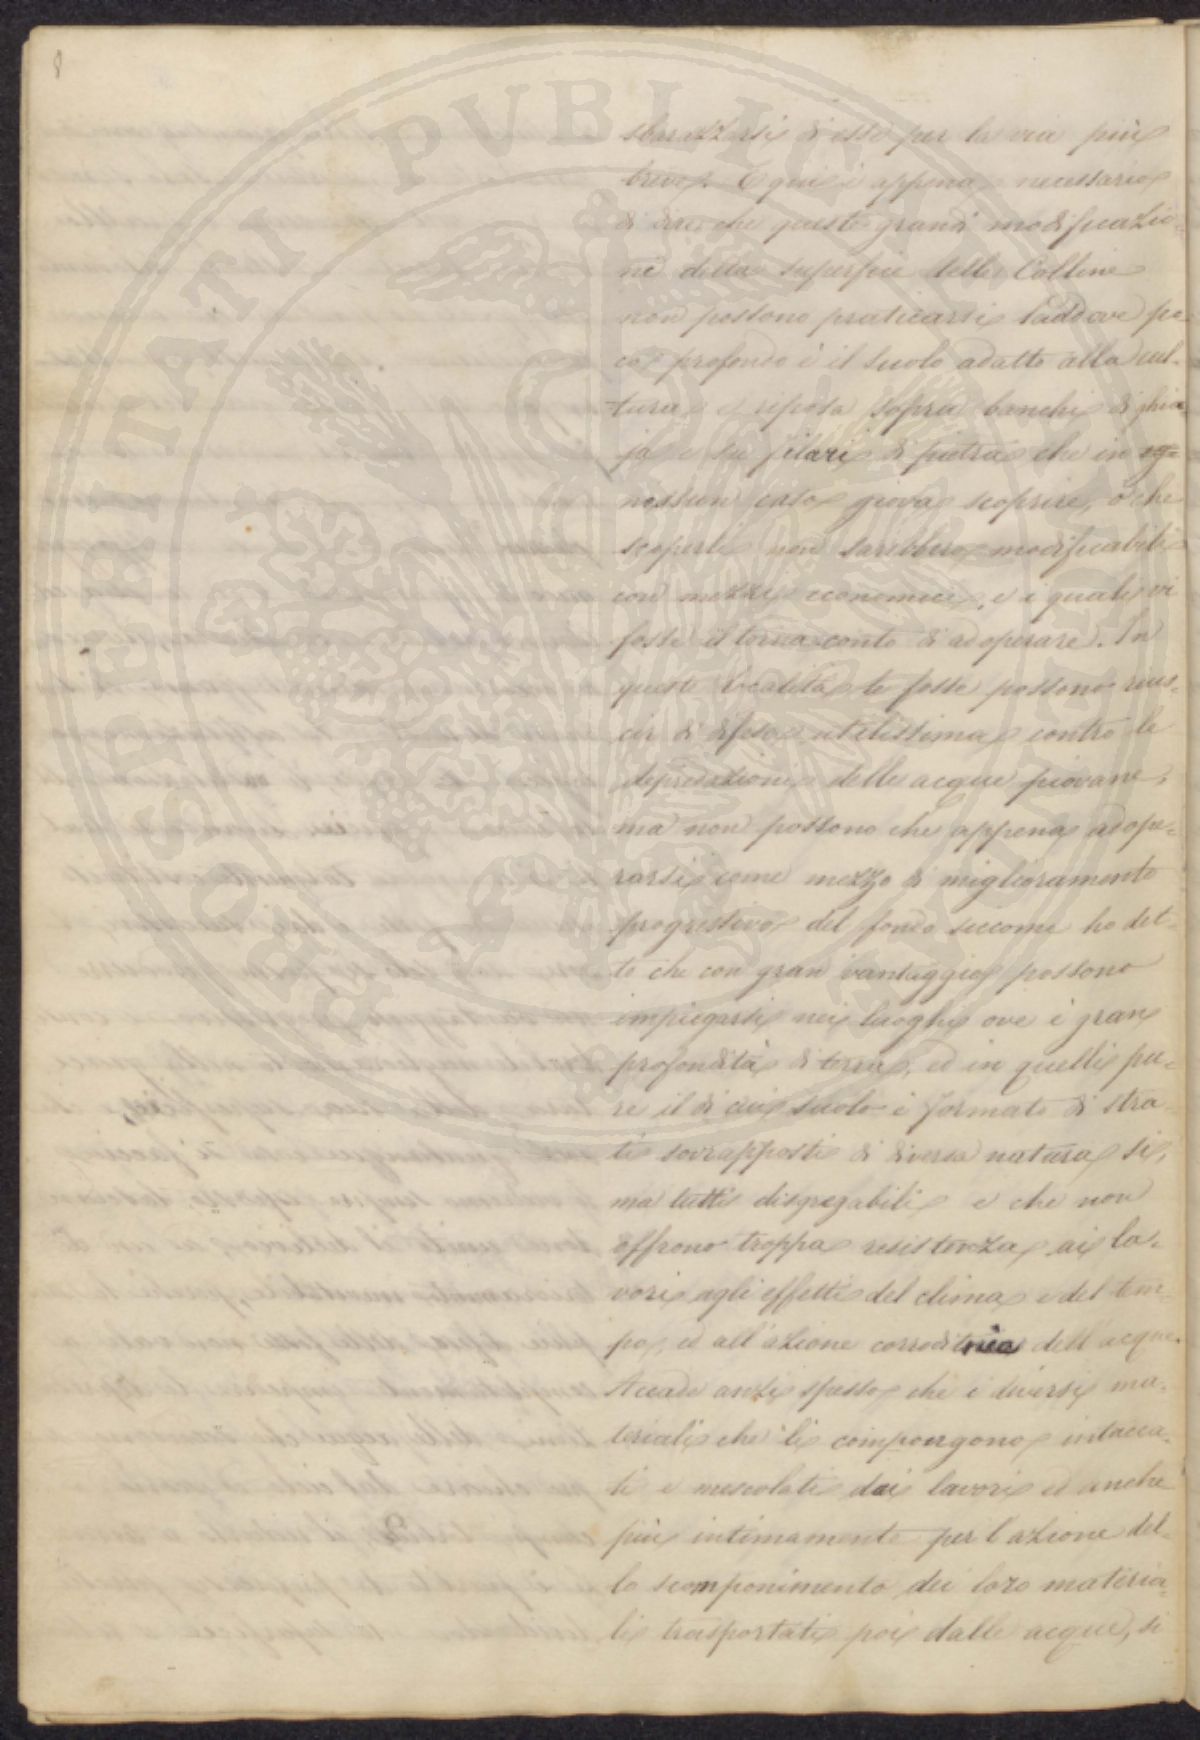 8
sbarazzarsi di esse per la via più
breve. E qui è appena necessario
di dire che queste grandi modificazio-
ni della superfice delle Colline
non possono praticarsi laddove po-
co profondo è il suolo adatto alla cul-
tura e riposa sopra banchi di ghia-
ja e su filari di pietra che in
nessun caso giova scoprire, o che
scoperti non sarebbero modificabili
con mezzi economici, e i quali vi
fosse il torna conto di adoperare. In
queste località le fosse possono rius-
cir di difesa utilissima contro le
depredazioni delle acque piovane,
ma non possono che appena adope-
rarsi come mezzo di miglioramento
progressivo del fondo siccome ho det-
to che con gran vantaggio possono
impiegarsi nei luoghi ove è gran
profondità di terra, ed in quelli pu-
re il di cui suolo è formato di stra-
ti sovrapposti di diversa natura sì,
ma tutti disgregabili e che non
offrono troppa resistenza ai la-
vori agli effetti del clima e del tem-
po, ed all'azione corroditrice dell'acque.
Accade anzi spesso che i diversi ma-
teriali che li compongono intacca-
ti e mescolati dai lavori ed anche
più intimamente per l'azione del-
lo scomponimento dei loro materia-
li trasportati poi dalle acque, si
PROSPERITATI PUBLICAE AUGENDAE